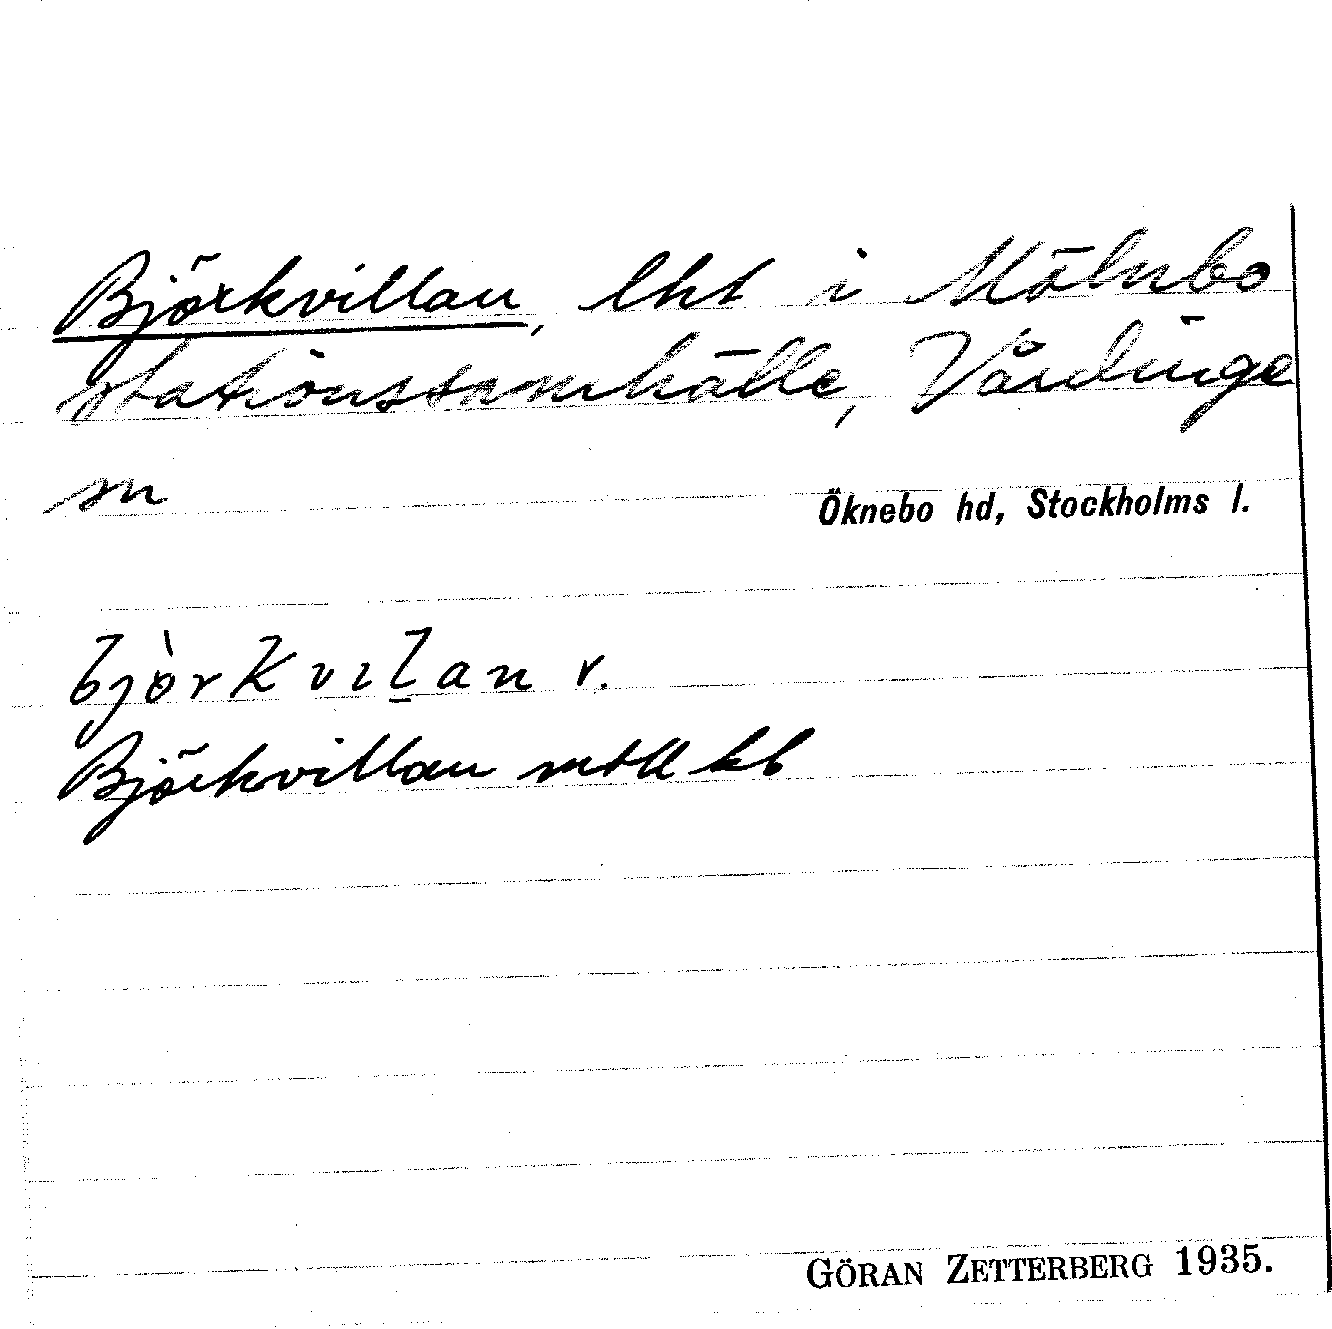 Björkvillan, lht i Mölnbo
stationssamhälle, Vårdinge
sn
Öknebo hd, Stockholms l.
bjòrkvιl̲an r.
Björkvillan mtll kb
GÖRAN ZETTERBERG 1935.